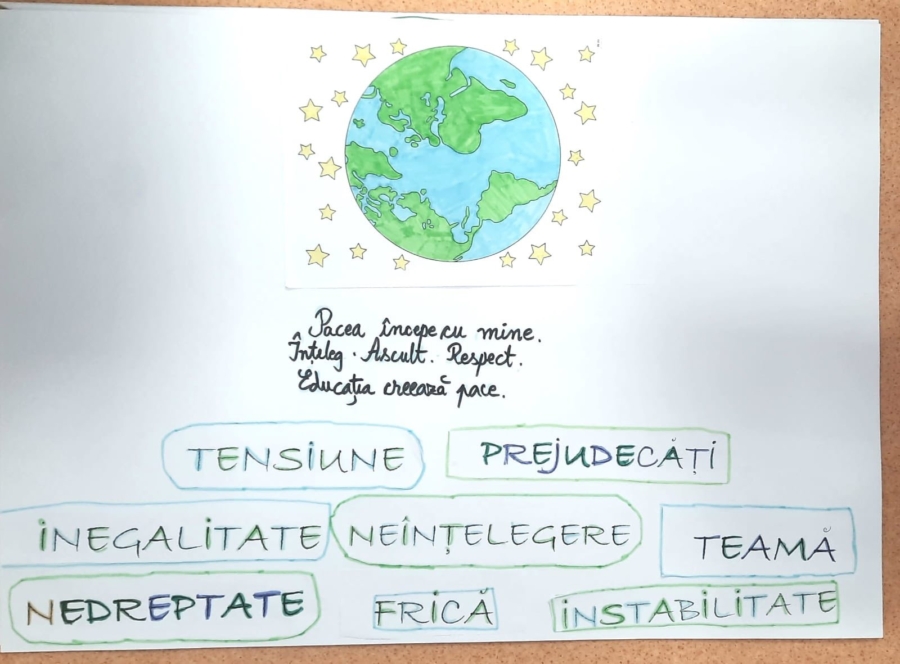 Pacea începe cu mine.
Înțeleg. Ascult. Respect.
Educația creează pace.
TENSIUNE PREJUDECĂȚI
INEGALITATE NEÎNȚELEGERE TEAMĂ
NEDREPTATE FRICĂ INSTABILITATE